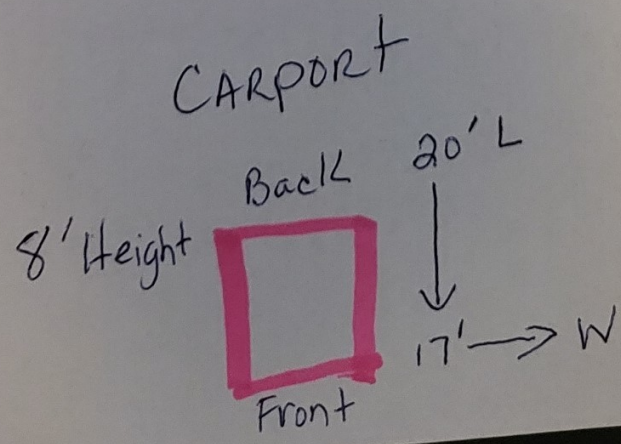 CARPORt
Back
20' L
8' Height
17' → W
Front